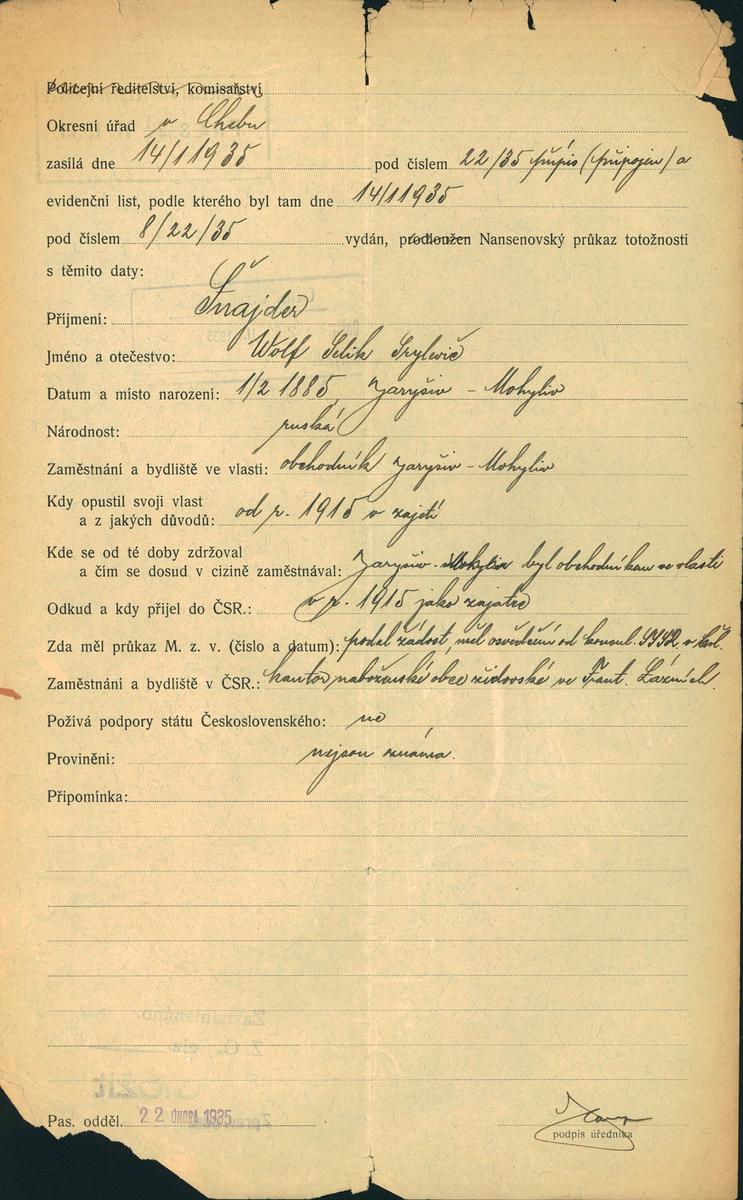 Policejní ředitelství, komisařství
Okresní úřad v Chebu
zasílá dne 14/1 1935 pod číslem 22/35 přípis (připojen) a
evidenční list, podle kterého byl tam dne 14/1 1935
pod číslem 8/22/35 vydán, prodloužen Nansenovský průkaz totožnosti
s těmito daty:
Příjmení: Šnajder
Jméno a otečestvo: Wolf Selik Srylevič
Datum a místo narození: 1/2 1885, Jaryšiv - Mohyliv
Národnost: ruská
Zaměstnání a bydliště ve vlasti: obchodník Jaryšiv - Mohyliv
Kdy opustil svoji vlast
a z jakých důvodů: od r. 1915 v zajetí
Kde se od té doby zdržoval
a čím se dosud v cizině zaměstnával: Jaryšiv - Mohyliv byl obchodníkem ve vlasti
Odkud a kdy přijel do ČSR.: v r. 1915 jako zajatec
Zda měl průkaz M. z. v. (číslo a datum): podal žádost, měl osvědčení od konsul.
Zaměstnání a bydliště v ČSR.: kantor náboženské obce židovské ve Frant. Lázních.
Požívá podpory státu Československého: ne
Provinění: nejsou známa.
Připomínka:
Zaznamenáno.
Pas. odděl. 22 ÚNORA 1935
podpis úředníka